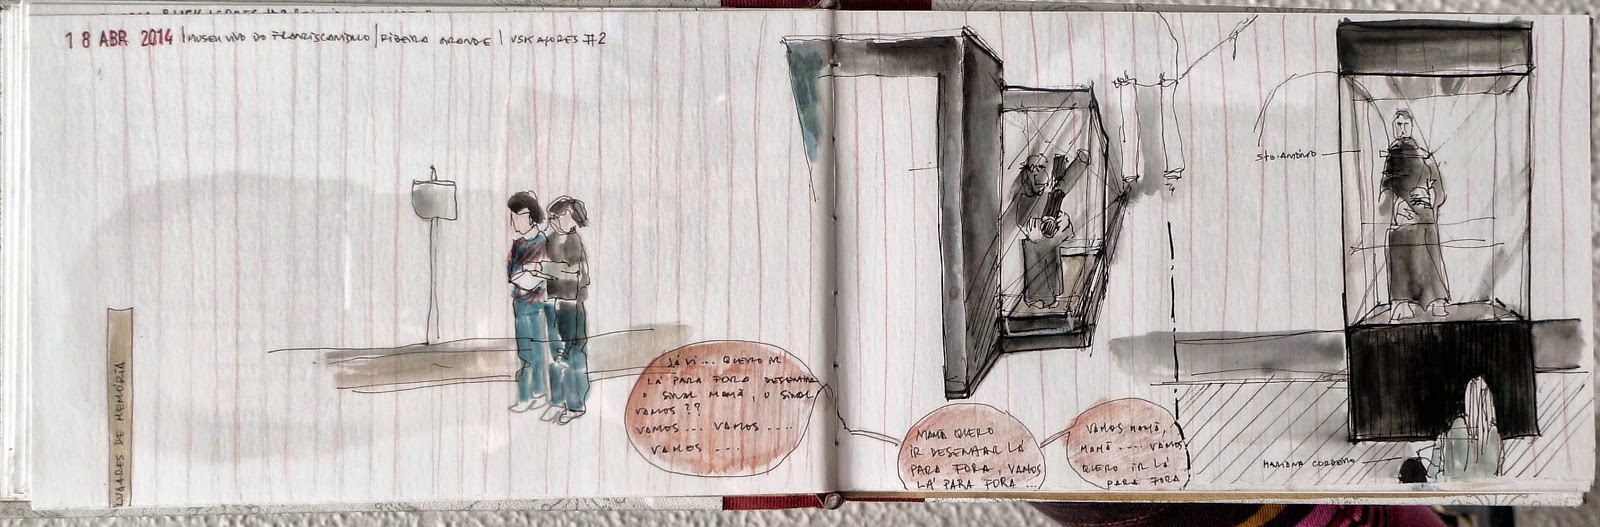 18 ABR 2014 | MUSEU VIVO DO FRANCISCANISMO | RIBEIRA GRANDE | USK AÇORES #2
LUGARES DE MEMÓRIA
JÁ VI... QUERO IR
LÁ PARA FORA DESENHAR
O SINAL MAMÃ, O SINAL
VAMOS??
VAMOS... VAMOS....
VAMOS....
MAMÃ QUERO
IR DESENHAR LÁ
PARA FORA, VAMOS
LÁ PARA FORA...
VAMOS MAMÃ,
MAMÃ.... VAMOS
QUERO IR LÁ
PARA FORA
STO. ANTÓNIO
MARIANA CORDEIRO